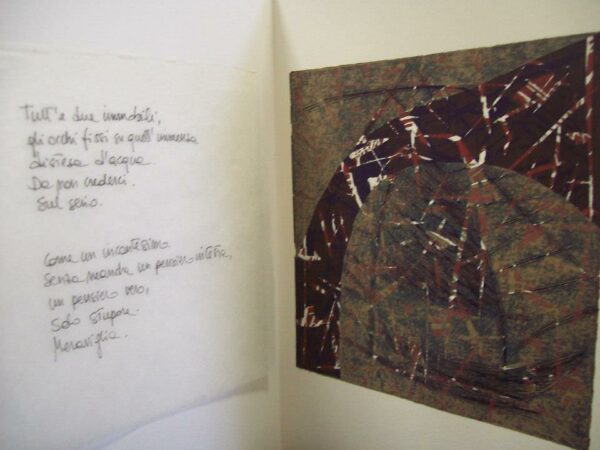 Tutt'e due immobili,
gli occhi fissi su quell'immensa
distesa d'acqua.
Da non crederci.
Sul serio.
Come un incantesimo.
Senza neanche un pensiero in testa,
un pensiero vero,
solo stupore.
Meraviglia.